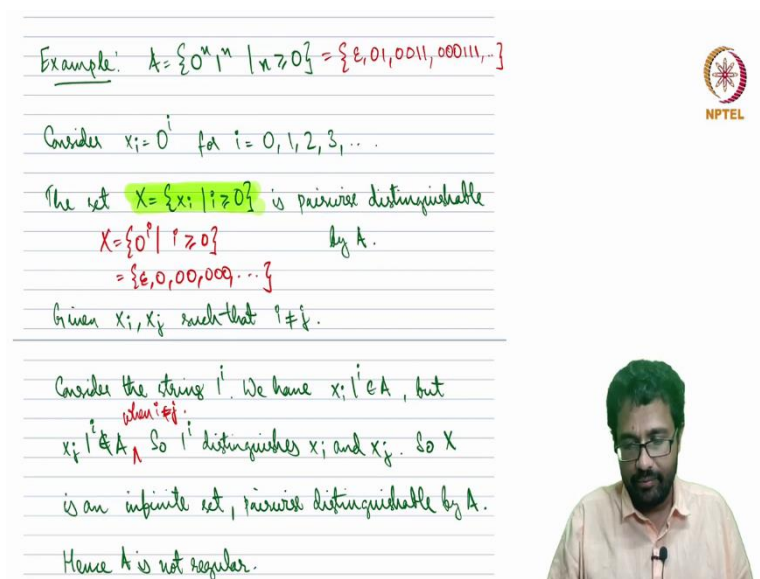 Example: A = {0ⁿ1ⁿ | n ≥ 0} = {ε, 01, 0011, 000111, ..}
NPTEL
Consider xᵢ = 0ⁱ for i = 0, 1, 2, 3, ...
The set X = {xᵢ | i ≥ 0} is pairwise distinguishable
X = {0ⁱ | i ≥ 0} by A.
= {ε, 0, 00, 000, ...}
Given xᵢ, xⱼ such that i ≠ j.
Consider the string 1ⁱ. We have xᵢ1ⁱ ∈ A, but
when i ≠ j.
xⱼ1ⁱ ∉ A ∧ So 1ⁱ distinguishes xᵢ and xⱼ. So X
is an infinite set, pairwise distinguishable by A.
Hence A is not regular.